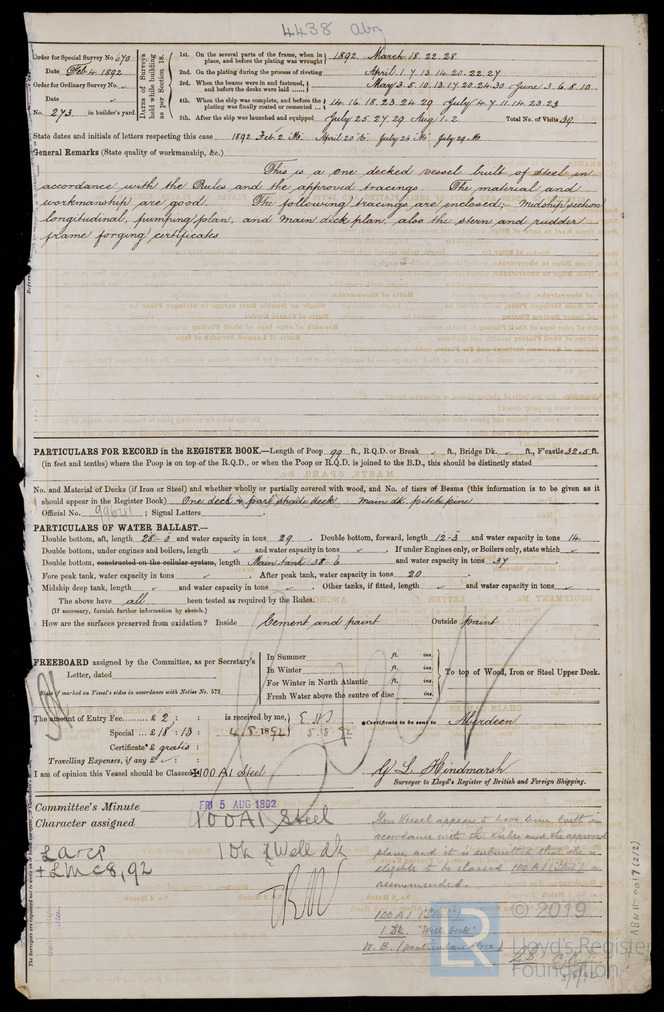 4438 Abn
Order for Special Survey No. 670
Date Feb 4 1892
Order for Ordinary Survey No.
Date
No. 273 in builder's yard.
Dates of Surveys held while building as per Section 18.
1st. On the several parts of the frame, when in place, and before the plating was wrought 1892 March 18. 22. 28
2nd. On the plating during the process of riveting April 1. 7. 13. 14. 20. 22. 27
3rd. When the beams were in and fastened, and before the decks were laid May 3. 5. 10. 13. 17. 20. 24. 30 June 3. 6. 8. 10.
4th. When the ship was complete, and before the plating was finally coated or cemented 14. 16. 18. 23. 24. 29 July 4. 7. 11. 14. 23. 23
5th. After the ship was launched and equipped July 25. 27. 29 Aug 1. 2. Total No. of Visits 39
State dates and initials of letters respecting this case 1892 Feb. 2. Mo. April 20 July 26 Mo July 29. Mo
General Remarks (State quality of workmanship, &c.)
This is a one decked vessel built of steel in
accordance with the Rules and the approved tracings. The material and
workmanship are good. The following tracings are enclosed;- midship section
longitudinal, pumping plan, and main deck plan, also the stern and rudder
frame forging certificates
PARTICULARS FOR RECORD in the REGISTER BOOK.—Length of Poop 99 ft., R.Q.D. or Break ft., Bridge Dk. ft., F'castle 32.5 ft.
(in feet and tenths) where the Poop is on top of the R.Q.D., or when the Poop or R.Q.D. is joined to the B.D., this should be distinctly stated
No. and Material of Decks (if Iron or Steel) and whether wholly or partially covered with wood, and No. of tiers of Beams (this information is to be given as it
should appear in the Register Book) One deck & part shade deck main dk pitch pine
Official No. 99641 ; Signal Letters
PARTICULARS OF WATER BALLAST.—
Double bottom, aft, length 28-0 and water capacity in tons 29. Double bottom, forward, length 12-3 and water capacity in tons 14
Double bottom, under engines and boilers, length and water capacity in tons . If under Engines only, or Boilers only, state which
Double bottom, constructed on the cellular system, length Main tank 38-6 and water capacity in tons 34
Fore peak tank, water capacity in tons . After peak tank, water capacity in tons 20
Midship deep tank, length and water capacity in tons . Other tanks, if fitted, length and water capacity in tons
The above have all been tested as required by the Rules.
(If necessary, furnish further information by sketch.)
How are the surfaces preserved from oxidation? Inside Cement and paint Outside paint
FREEBOARD assigned by the Committee, as per Secretary's
Letter, dated
State if marked on Vessel's sides in accordance with Notice No. 572
In Summer ft. ins.
In Winter ft. ins.
For Winter in North Atlantic ft. ins.
Fresh Water above the centre of disc ins.
To top of Wood, Iron or Steel Upper Deck.
The amount of Entry Fee £ 2 : : is received by me,
Special £ 18 : 13 : 4.8.1892
5.8.92
Certificate £ gratis :
Travelling Expenses, if any £ :
Certificate to be sent to Aberdeen
I am of opinion this Vessel should be Classed 100 A1 Steel
G L Hindmarsh
Surveyor to Lloyd's Register of British and Foreign Shipping.
Committee's Minute FRI 5 AUG 1892
Character assigned 100A1 Steel
1 Dk & Well dk
+LMC 8,92
This Vessel appears to have been built in
accordance with the Rules and the approved
plans, and it is submitted that she is
eligible to be classed 100 A1 (Steel) as
recommended.
100 A1 (Steel)
1 Dk. "Well deck"
W. B. (particulars above)
ABN11-0017 (2/2)
© 2019
LR
Lloyd's Register
Foundation